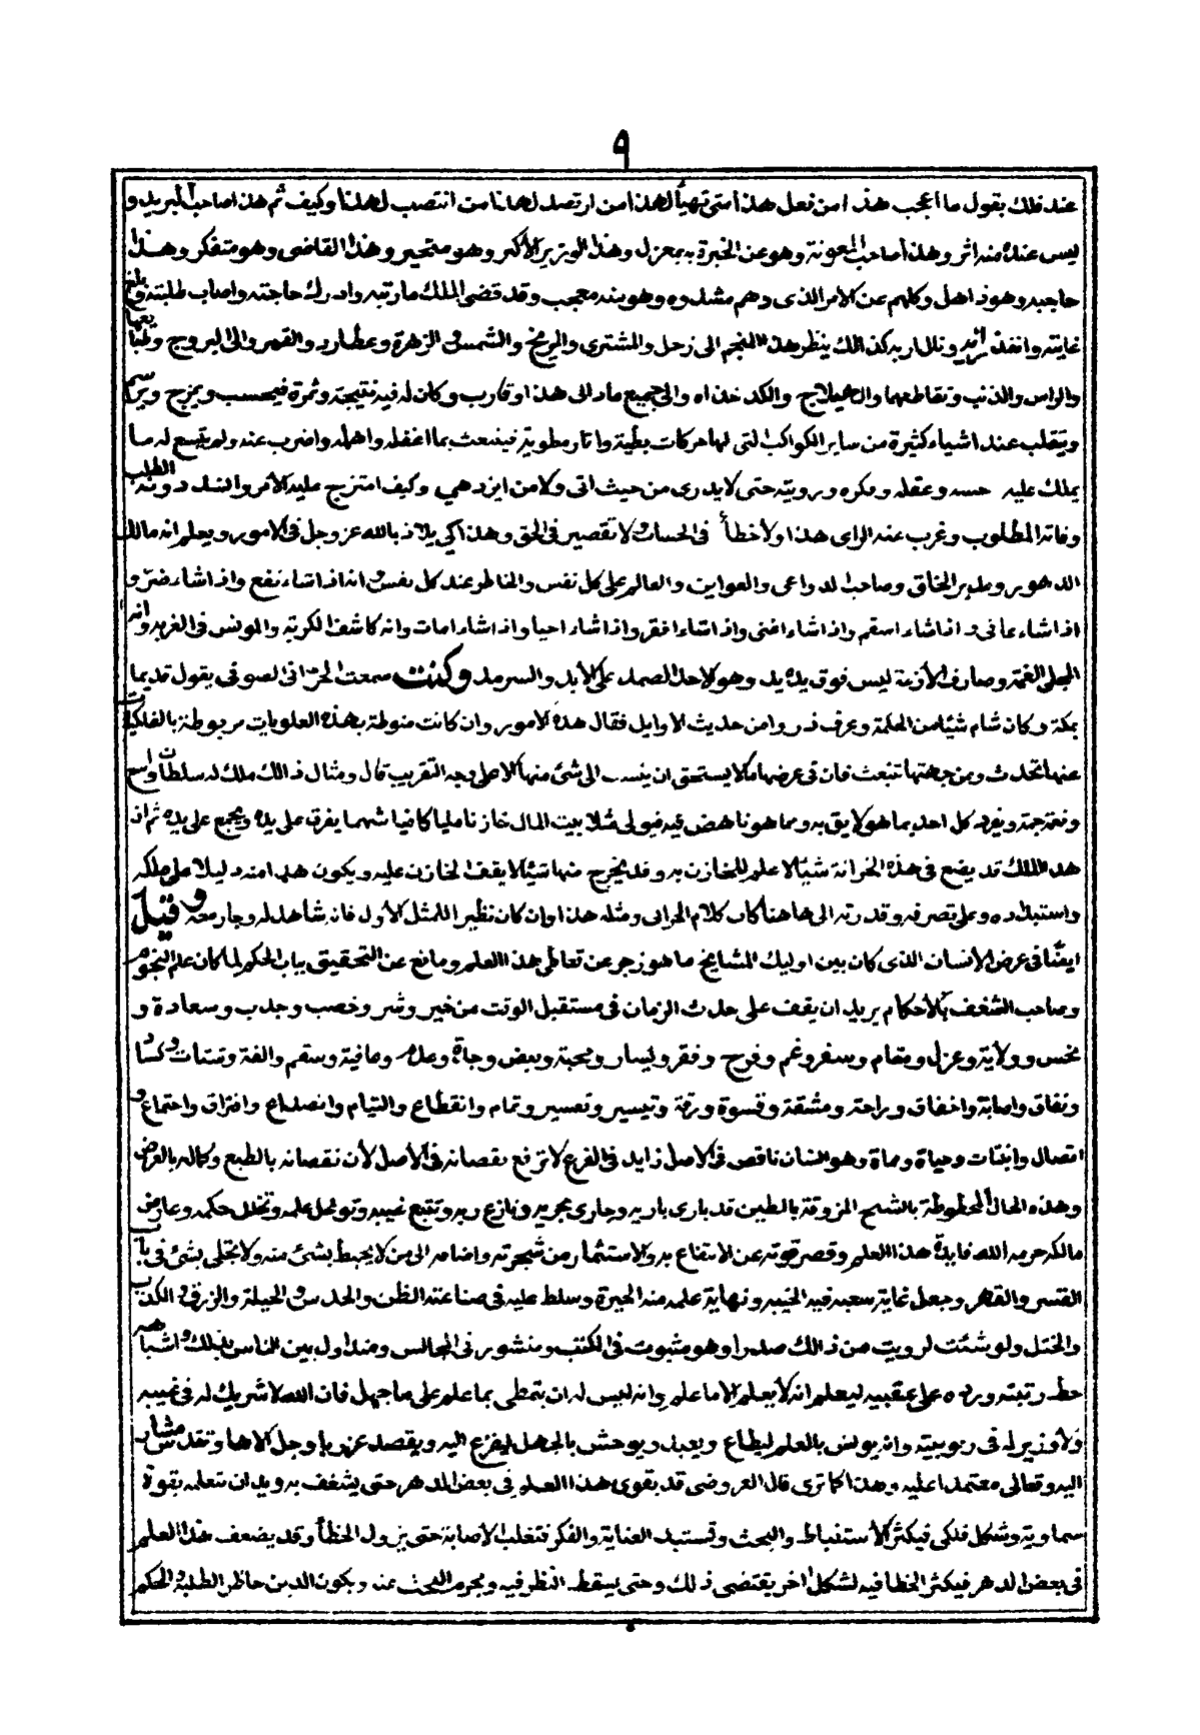 ٩
عند ذلك يقول ما أعجب هذا من فعل هذا متى تهيأ لهذا من ارتصد لهذا من انتصب لهذا وكيف تم هذا صاحب البريد و
ليس عنده منه اثر وهذا صاحب المعونة وهو عن الخبرة به بمعزل وهذا الوزير الأكبر وهو متحير وهذا القاضى وهو متفكر وهذا
حاجبه وهو ذاهل وكلهم عن الامر الذى وهم مشدوه وهو منه معجب وقد قضى الملك مأربه وادرك حاجته واصاب طلبته وبلغ
غايته وانفذ رأيه ونال اربه كذالك ينظر هذا المنجم الى زحل والمشترى والمريخ والشمس والزهرة وعطارد والقمر والى البروج وطبايعها
والراس والذنب وتقاطعهما والهيلاج والكدخذاه والى جميع ما دانى هذا او قارب وكان له فيه نتيجة وثمرة فيحسب ويمزج ويرسم
ويتقلب عنه اشياء كثيرة من ساير الكواكب التى لها حركات بطيئة واثار مطوية فينبعث بما اغفله واهمله واضرب عنه ولم يتسع له ما
يملك عليه حسه وعقله وفكره ورويته حتى لا يدرى من حيث اتى ولا من اين دهي وكيف امتزج عليه الأمر وانسد دونه الطلب
وفاته المطلوب وغرب عنه الراى هذا ولا خطأ فى الحساب ولا تقصير فى الحق وهذا كى يلاذ بالله عز وجل فى الامور ويعلم انه مالك
الدهور ومدبر الخلق وصاحب الدواعى والعواين والعالم على كل نفس والخاطر عند كل نفس وانه اذا شاء نفع واذا شاء ضرّ و
اذا شاء عافى واذا شاء اسقم واذا شاء اغنى واذا شاء افقر واذا شاء احيا واذا شاء امات وانه كاشف الكربة والمونس فى الغربة وانه
المجلى الغمة وصارف الأزمة ليس فوق يده يد وهو الاحد الصمد على الأبد والسرمد وكنت سمعت الحرانى الصوفى يقول قديما
بمكة وكان شام شيئا من الحكمة وعرف ذروا من حديث الاوايل فقال هذه الامور وان كانت منوطة بهذه العلويات مربوطة بالفلكيات
عنها تحدث ومن جهتها تنبعث فان فى عرضها ما لا يستحق ان ينسب الى شئ منها الا على وجه التقريب قال ومثال ذالك ملك له سلطان واسع
ونعمة جمة ويفرد كل احد بما هو لايق به وبما هو ناهض فيه فيولى مثلا بيت المال خازنا مليا كافيا شهما يفرق على يده ويجمع على يده ثم اذ
هذا الملك قد يضع فى هذه الخزانة شيئا لا علم للخازن به وقد يخرج منها شيئا لا يقف الخازن عليه ويكون هذا منه دليلا على ملكه
واستبداده وعلى تصرفه وقدرته الى هاهنا كان كلام الحرانى ومثله هذا وان كان نظير المثل الأول فانه شاهد له وجار معه و قيل
ايضًا فى عرض الانسان الذى كان بين اوليك المشايخ ما هو زجر عن تعاطى هذا العلم ومانع عن التحقيق بباب الحكم لما كان علم النجوم
وصاحب الشغف بالأحكام يريد ان يقف على حدث الزمان فى مستقبل الوقت من خير وشر وخصب وجدب وسعادة و
نحس وولاية وعزل ومقام وسفر وغم وفرح وفقر ويسار ومحبة وبغض وجدة وعدم وعافية وسقم والفة وشتات وكساد
ونفاق واصابة واخفاق وراحة ومشقة وقسوة ورقة وتيسير وتعسير وتمام وانقطاع والتيام وانصداع وافتراق واجتماع و
اتصال وانبتات وحياة ومماة وهو انسان ناقص فى الاصل زايد فى الفرع لا ترفع نقصانه فى الأصل لأن نقصانه بالطبع وكماله بالعرض
وهذه الحال المحطوطة بالشبح المزوقة بالطين قد بارى باريه وجارى مجريه ونازع ربه وتتبع غيبه وتوغل علمه وتخلل حكمه وعارض
مالكه حرمه الله فايدة هذا العلم وقصر قوته عن الانتفاع به والاستثمار من شجرته واضافه الى من لا يحيط بشئ منه ولا يتجلى بشئ فى باب
القسر والقهر وجعل غاية سعيه فيه الخيبه ونهاية علمه منه الحيرة وسلط عليه فى صناعته الظن والحدس والحيلة والزرق والكذب
والختل ولو شئت لرويت من ذالك صدرا وهو مثبوت فى الكتب ومنشور فى المجالس ومتداول بين الناس فبذلك واشباهه
حط رتبته ورده على عقبيه ليعلم انه لا يعلم الا ما علم وانه ليس له ان يتمطى بما علم على ما جهل فان الله لا شريك له فى غيبه
ولا وزير له فى ربوبيته وانه يونس بالعلم ليطاع ويعبد ويوحش بالجهل ليفزع اليه ويقصد عز ربا وجل الاها وتقدس مشار
اليه وتعالى معتمدا عليه وهذا كما ترى قال العروضى قد يقوى هذا العلم فى بعض الدهر حتى يشغف به ويدان بتعلمه بقوة
سماوية وشكل فلكى فيكثر الأستنباط والبحث وتستبد العناية والفكر فتغلب الاصابة حتى يزول الخطأ وقد يضعف هذا العلم
فى بعض الدهر فيكثر الخطا فيه لشكل اخر يقتضى ذلك وحتى يسقط النظر فيه ويحرم البحث عنه ويكون الدين حاظرا لطلبه والحكم